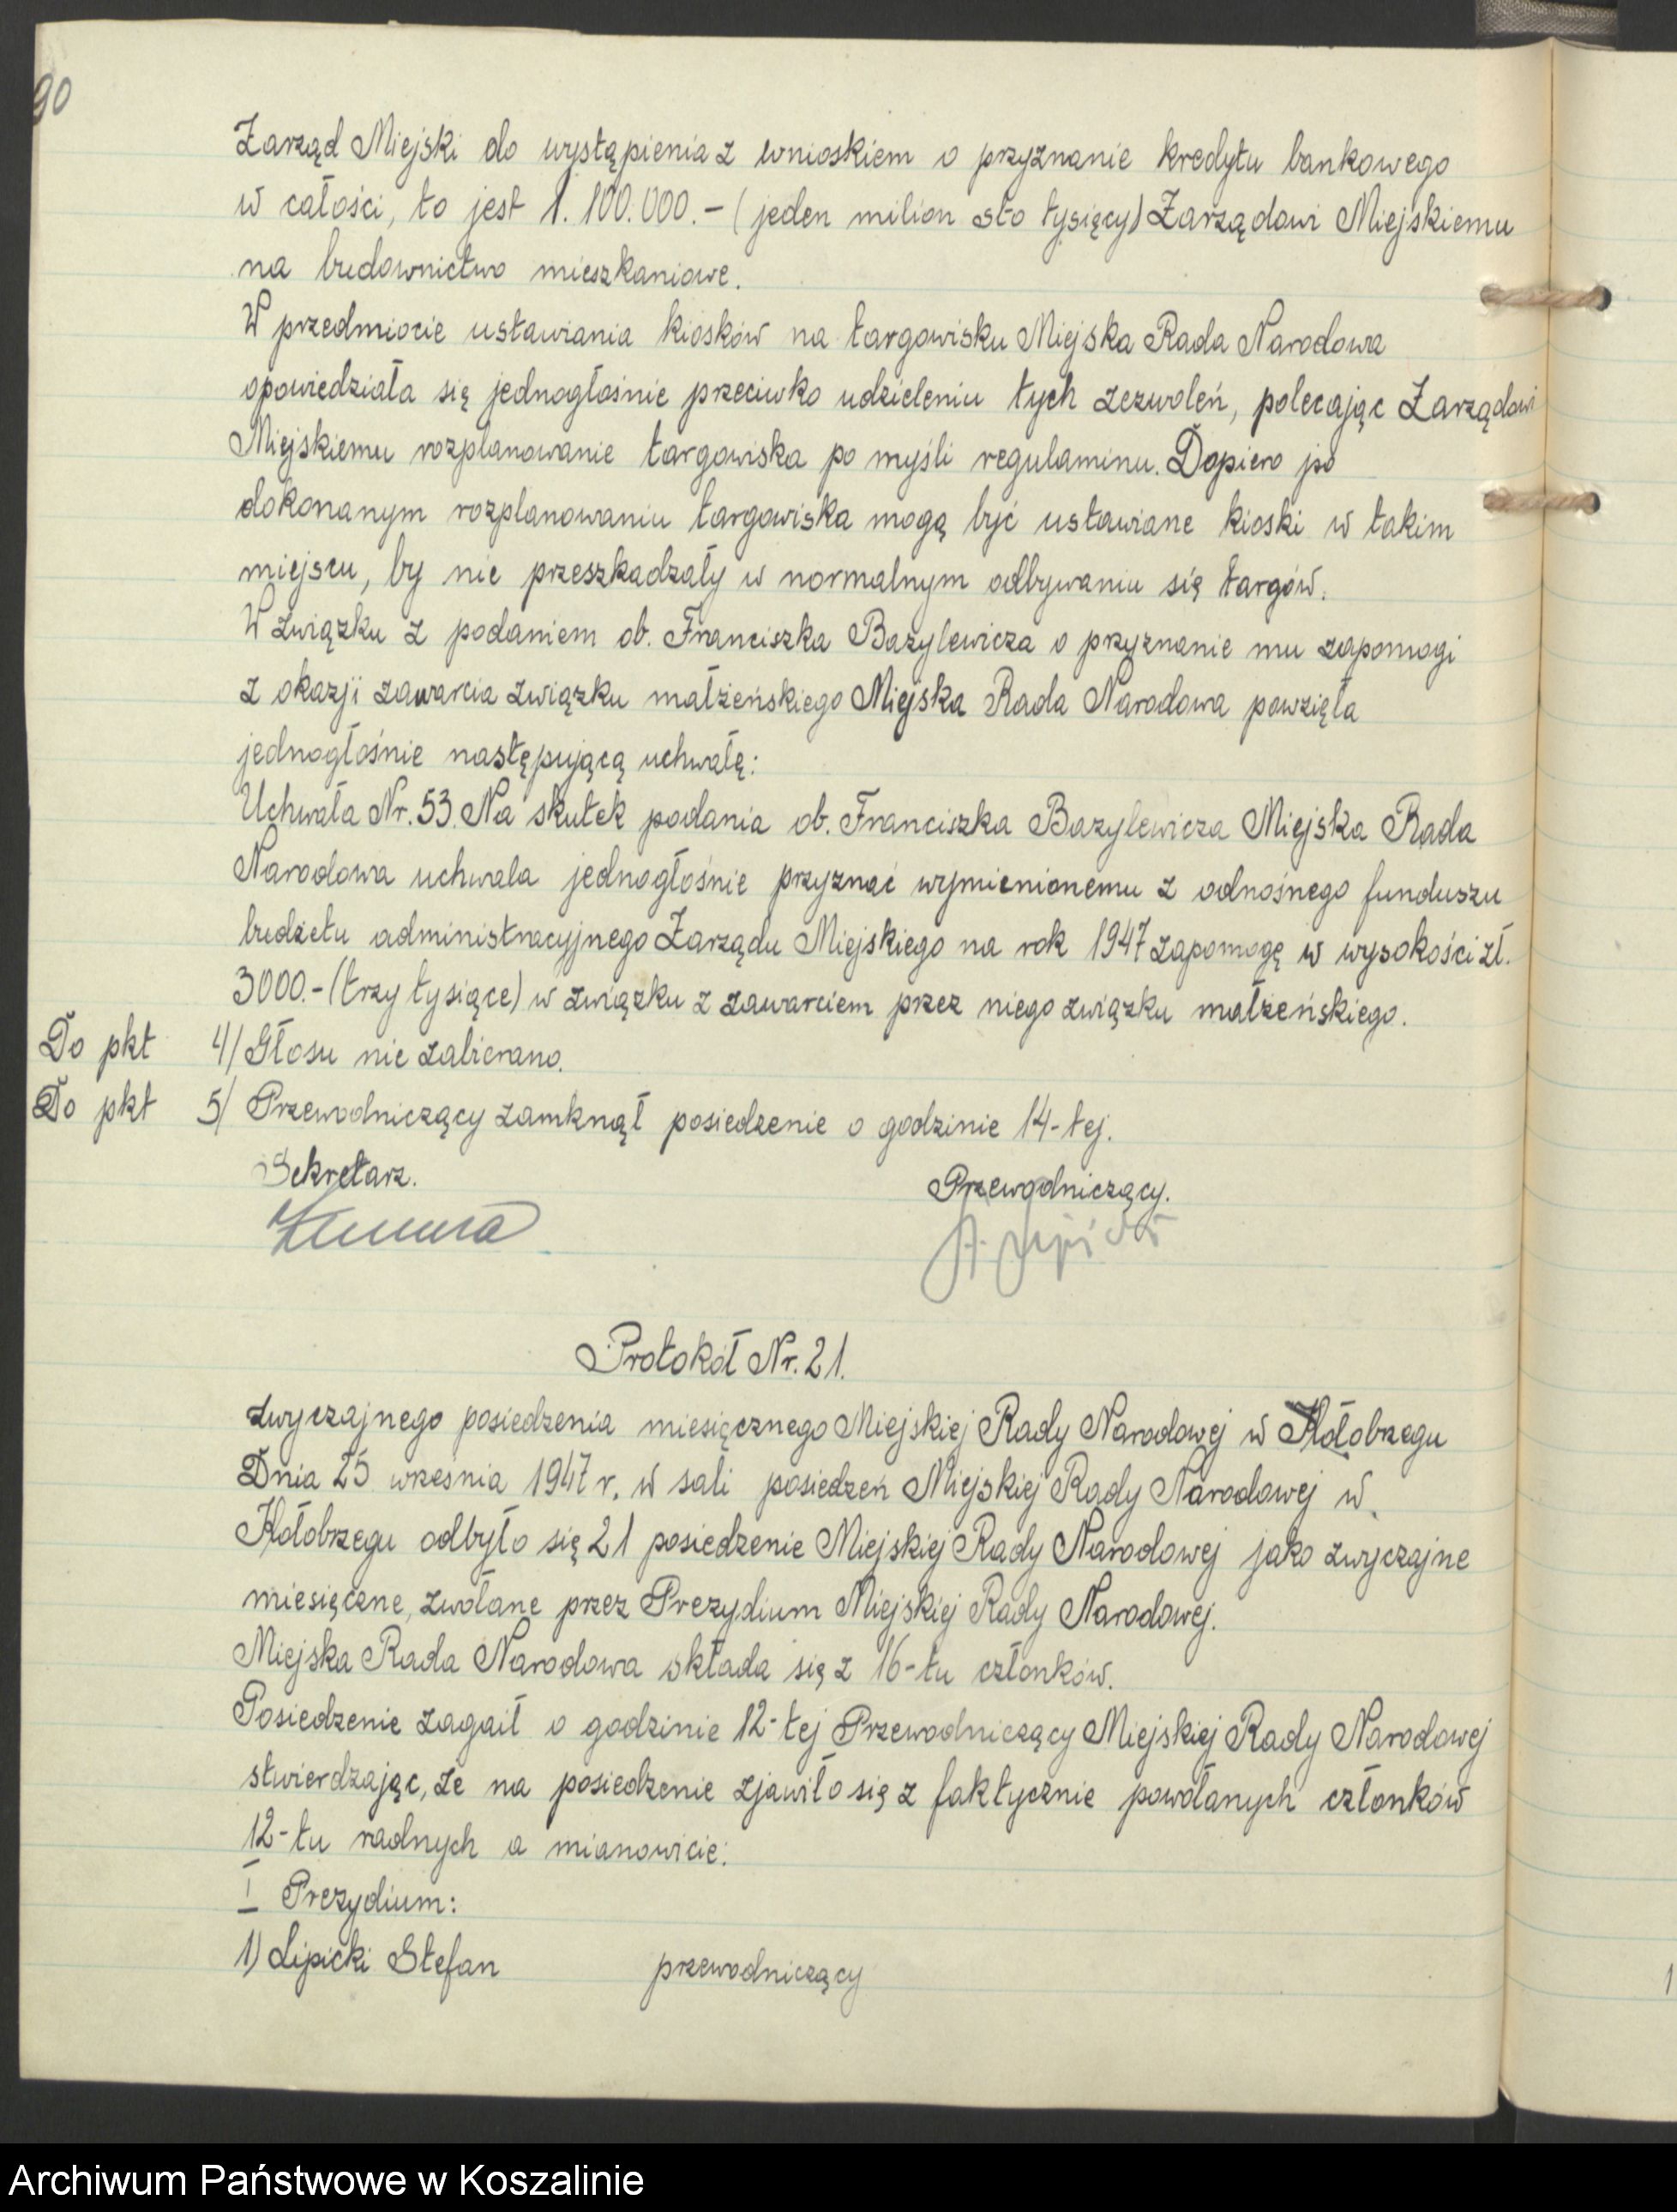 90
Zarząd Miejski do wystąpienia z wnioskiem o przyznanie kredytu bankowego
w całości, to jest 1.100.000.- (jeden milion sto tysięcy) Zarządowi Miejskiemu
na budownictwo mieszkaniowe.
W przedmiocie ustawiania kiosków na targowisku Miejska Rada Narodowa
opowiedziała się jednogłośnie przeciwko udzieleniu tych zezwoleń, polecając Zarządowi
Miejskiemu rozplanowanie targowiska po myśli regulaminu. Dopiero po
dokonanym rozplanowaniu targowiska mogą być ustawiane kioski w takim
miejscu, by nie przeszkadzały w normalnym odbywaniu się targów.
W związku z podaniem ob. Franciszka Bazylewicza o przyznanie mu zapomogi
z okazji zawarcia związku małżeńskiego Miejska Rada Narodowa powzięła
jednogłośnie następującą uchwałę:
Uchwała Nr. 53. Na skutek podania ob. Franciszka Bazylewicza Miejska Rada
Narodowa uchwala jednogłośnie przyznać wymienionemu z odnośnego funduszu
budżetu administracyjnego Zarządu Miejskiego na rok 1947 zapomogę w wysokości zł.
3000.- (trzy tysiące) w związku z zawarciem przez niego związku małżeńskiego.
Do pkt 4/ Głosu nie zabierano.
Do pkt 5/ Przewodniczący zamknął posiedzenie o godzinie 14-tej.
Sekretarz. Przewodniczący.
Protokół Nr. 21.
zwyczajnego posiedzenia miesięcznego Miejskiej Rady Narodowej w Kołobrzegu
Dnia 25 września 1947 r. w sali posiedzeń Miejskiej Rady Narodowej w
Kołobrzegu odbyło się 21 posiedzenie Miejskiej Rady Narodowej jako zwyczajne
miesięczne, zwołane przez Prezydium Miejskiej Rady Narodowej.
Miejska Rada Narodowa składa się z 16-tu członków.
Posiedzenie zagaił o godzinie 12-tej Przewodniczący Miejskiej Rady Narodowej
stwierdzając, że na posiedzenie zjawiło się z faktycznie powołanych członków
12-tu radnych a mianowicie:
I Prezydium:
1) Lipicki Stefan przewodniczący
Archiwum Państwowe w Koszalinie